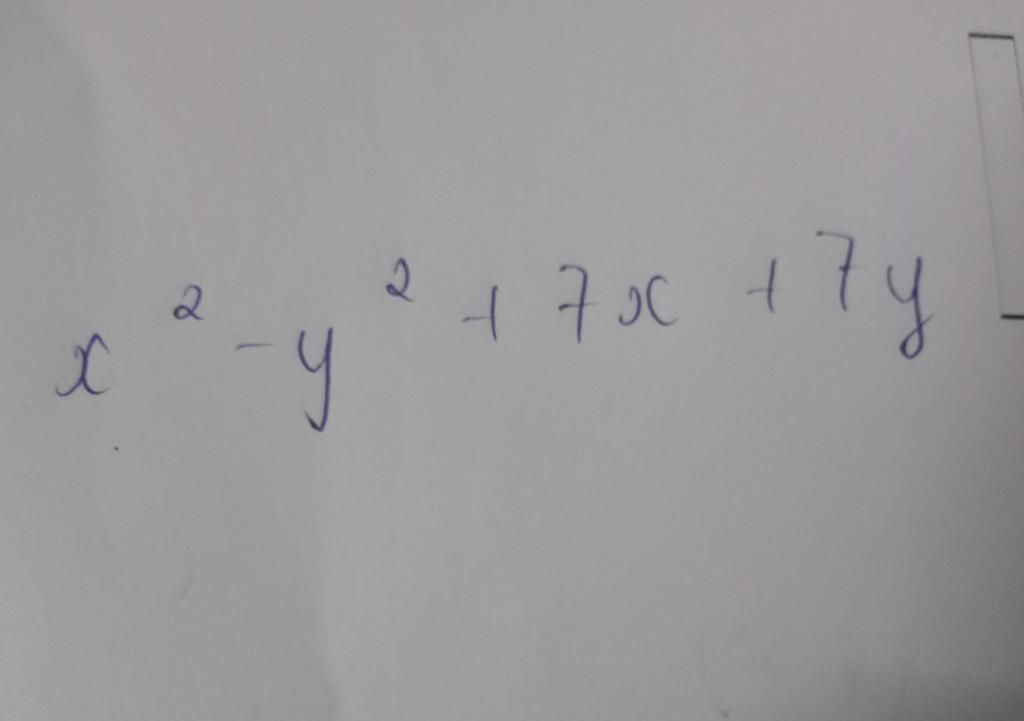 x² - y² + 7x + 7y